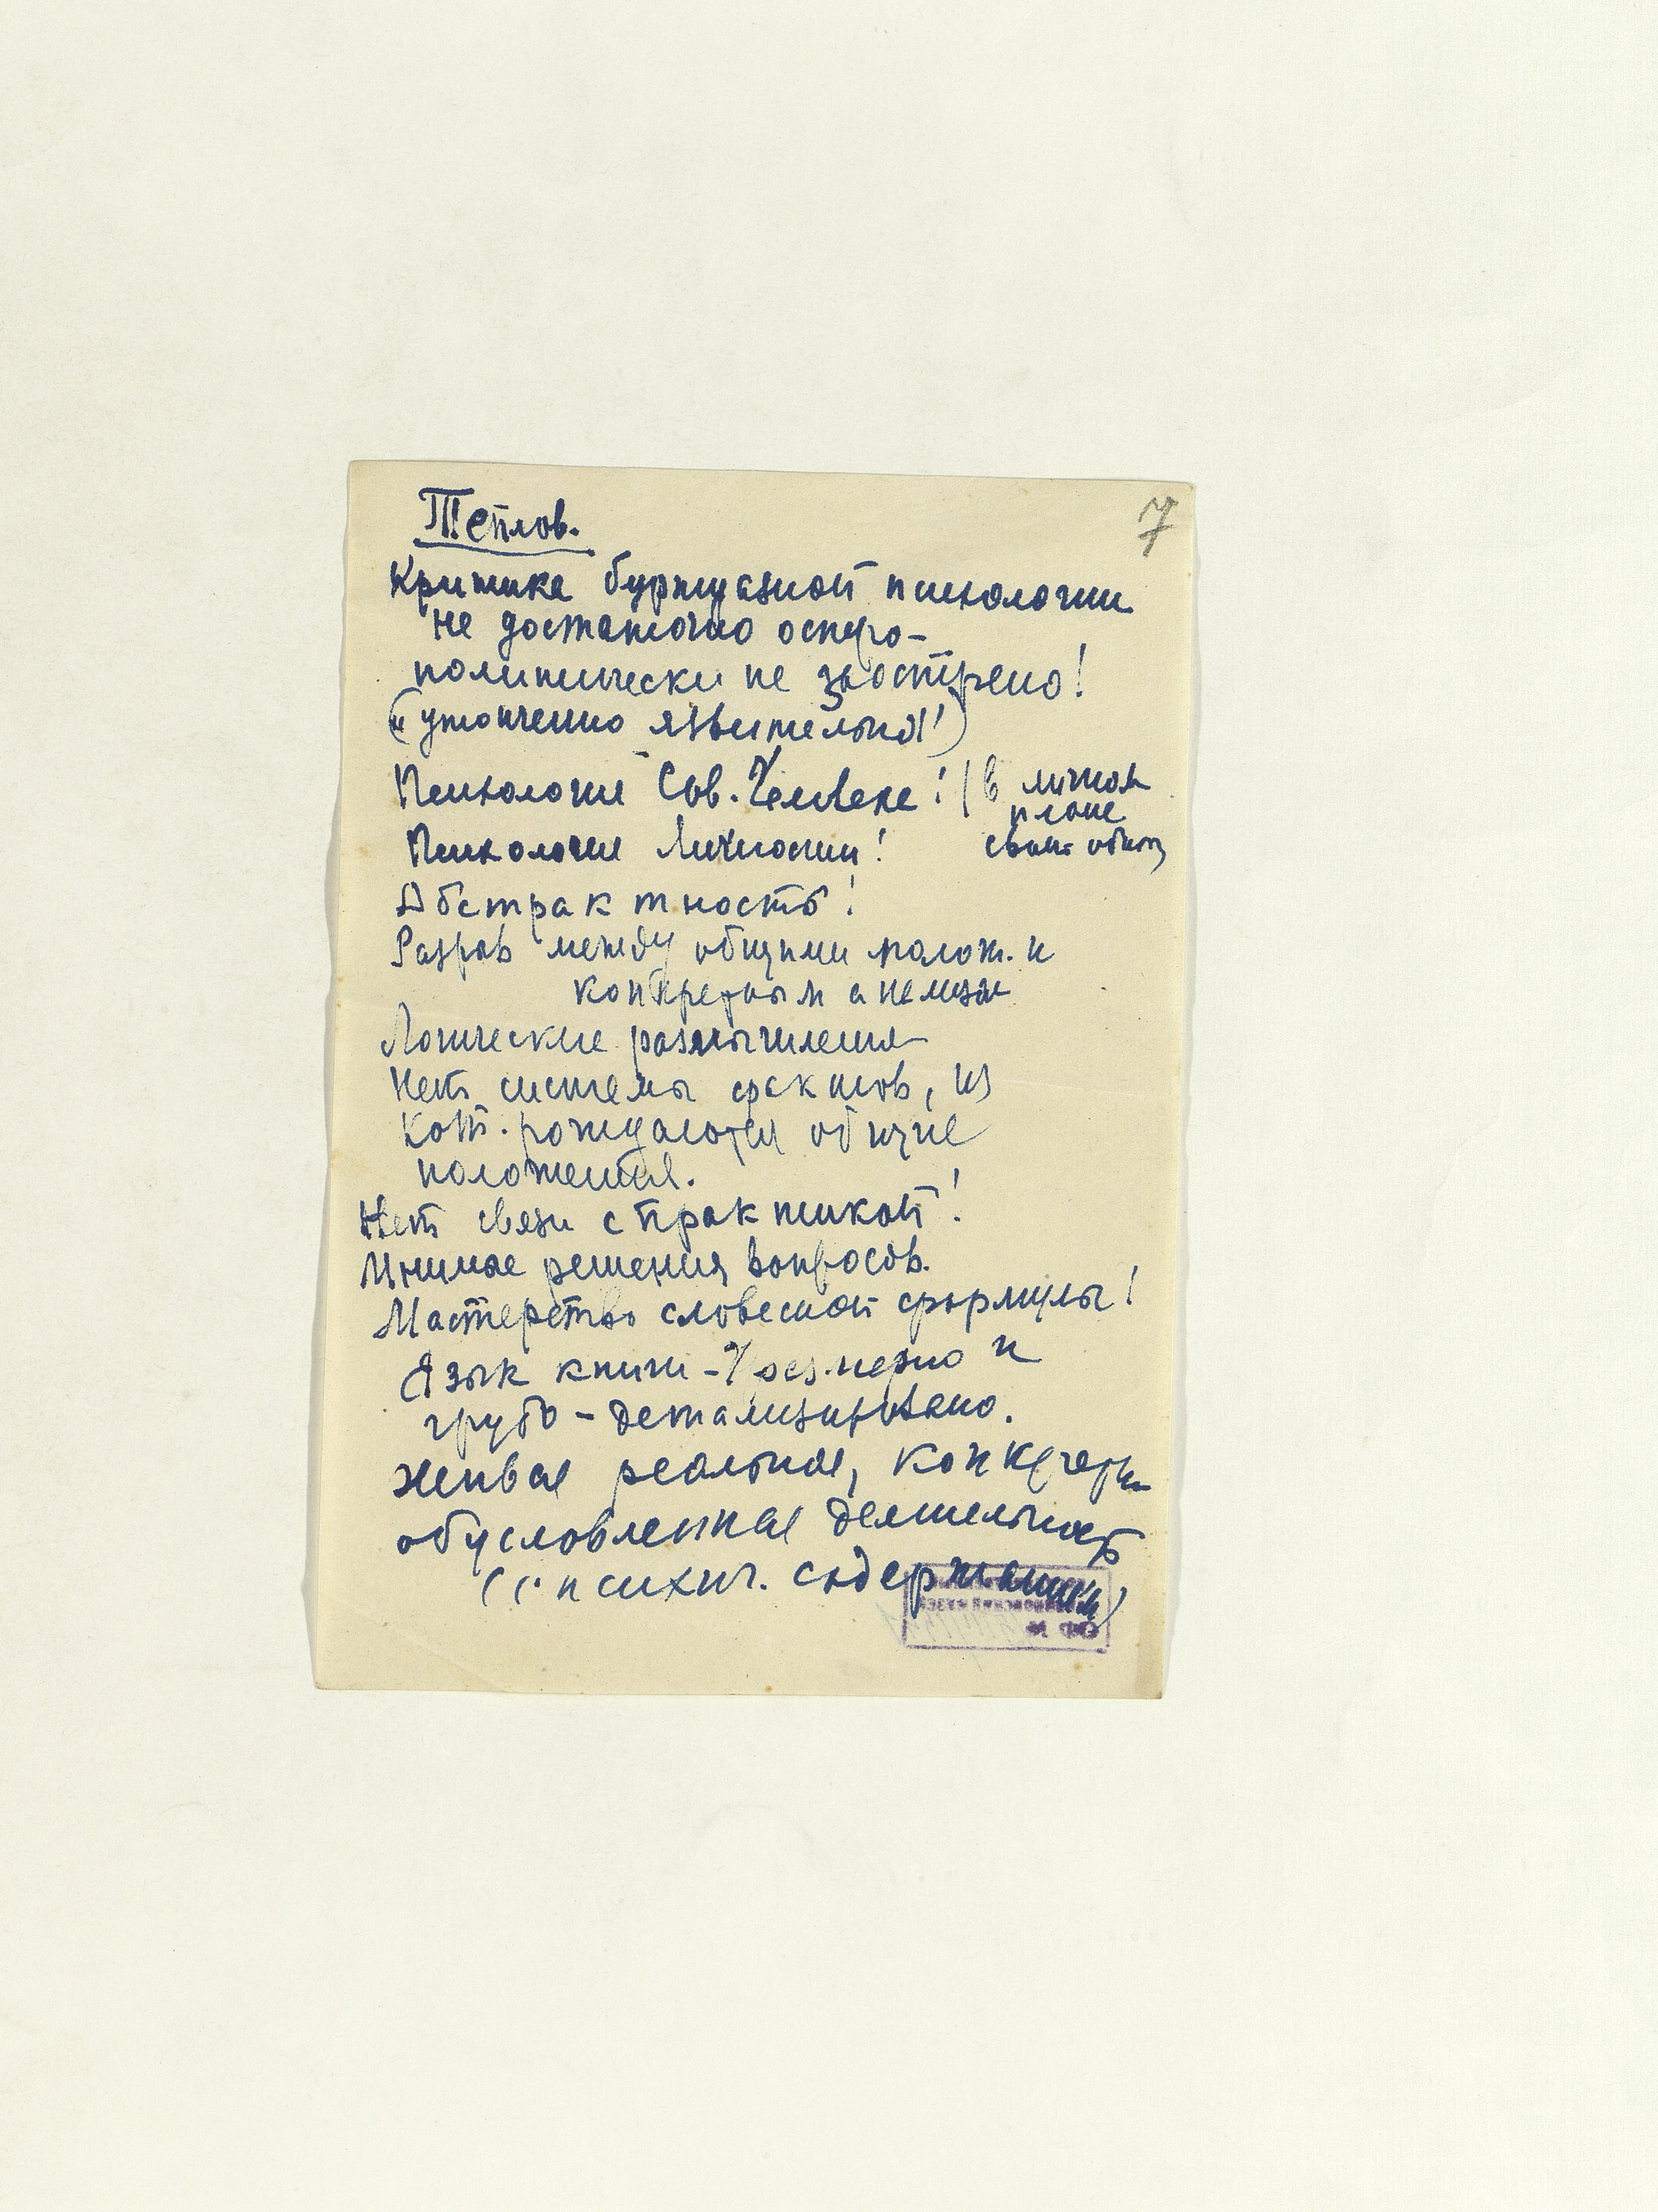 7
Теплов.
Критика буржуазной психологии
не достаточно остро-
политически не заострено!
("утонченно язвительный")
Психология Сов. Человека! | в личном
плане
Психология Личности!
Абстрактность!
Разрыв между общими полож. и
конкретным анализом
Логические размышления
Нет системы фактов, из
кот. рождаются общие
положения.
Нет связи с практикой!
Мнимые решения вопросов.
Мастерство словесной формулы!
Язык книги - Чрезмерно и
грубо - детализировано.
Живая реальная, конкретно
обусловленная деятельность
(с психич. содержанием)